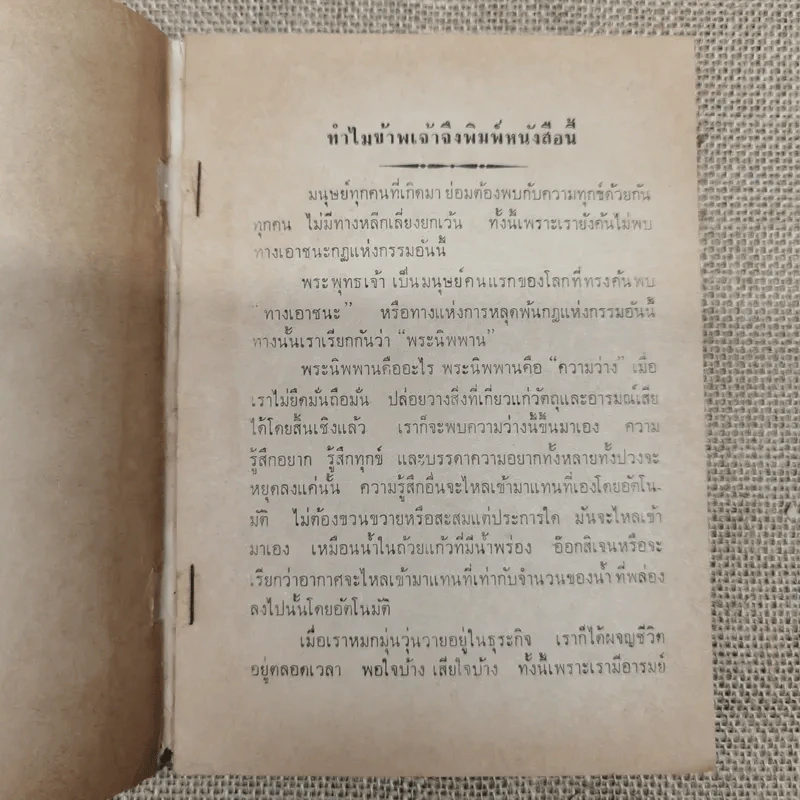 ทำไมข้าพเจ้าจึงพิมพ์หนังสือนี้
มนุษย์ทุกคนที่เกิดมา ย่อมต้องพบกับความทุกข์ด้วยกัน
ทุกคน ไม่มีทางหลีกเลี่ยงยกเว้น ทั้งนี้เพราะเรายังค้นไม่พบ
ทางเอาชนะกฎแห่งกรรมอันนี้
พระพุทธเจ้า เป็นมนุษย์คนแรกของโลกที่ทรงค้นพบ
"ทางเอาชนะ" หรือทางแห่งการหลุดพ้นกฎแห่งกรรมอันนี้
ทางนั้นเราเรียกกันว่า "พระนิพพาน"
พระนิพพานคืออะไร พระนิพพานคือ "ความว่าง" เมื่อ
เราไม่ยึดมั่นถือมั่น ปล่อยวางสิ่งที่เกี่ยวแก่วัตถุและอารมณ์เสีย
ได้โดยสิ้นเชิงแล้ว เราก็จะพบความว่างนี้ขึ้นมาเอง ความ
รู้สึกอยาก รู้สึกทุกข์ และบรรดาความอยากทั้งหลายทั้งปวงจะ
หยุดลงแค่นั้น ความรู้สึกอื่นจะไหลเข้ามาแทนที่เองโดยอัตโน-
มัติ ไม่ต้องขวนขวายหรือสะสมแต่ประการใด มันจะไหลเข้า
มาเอง เหมือนน้ำในถ้วยแก้วที่มีน้ำพร่อง อ๊อกสิเจนหรือจะ
เรียกว่าอากาศจะไหลเข้ามาแทนที่เท่ากับจำนวนของน้ำ ที่พล่อง
ลงไปนั้นโดยอัตโนมัติ
เมื่อเราหมกมุ่นวุ่นวายอยู่ในธุระกิจ เราก็ได้ผจญชีวิต
อยู่ตลอดเวลา พอใจบ้าง เสียใจบ้าง ทั้งนี้เพราะเรามีอารมย์